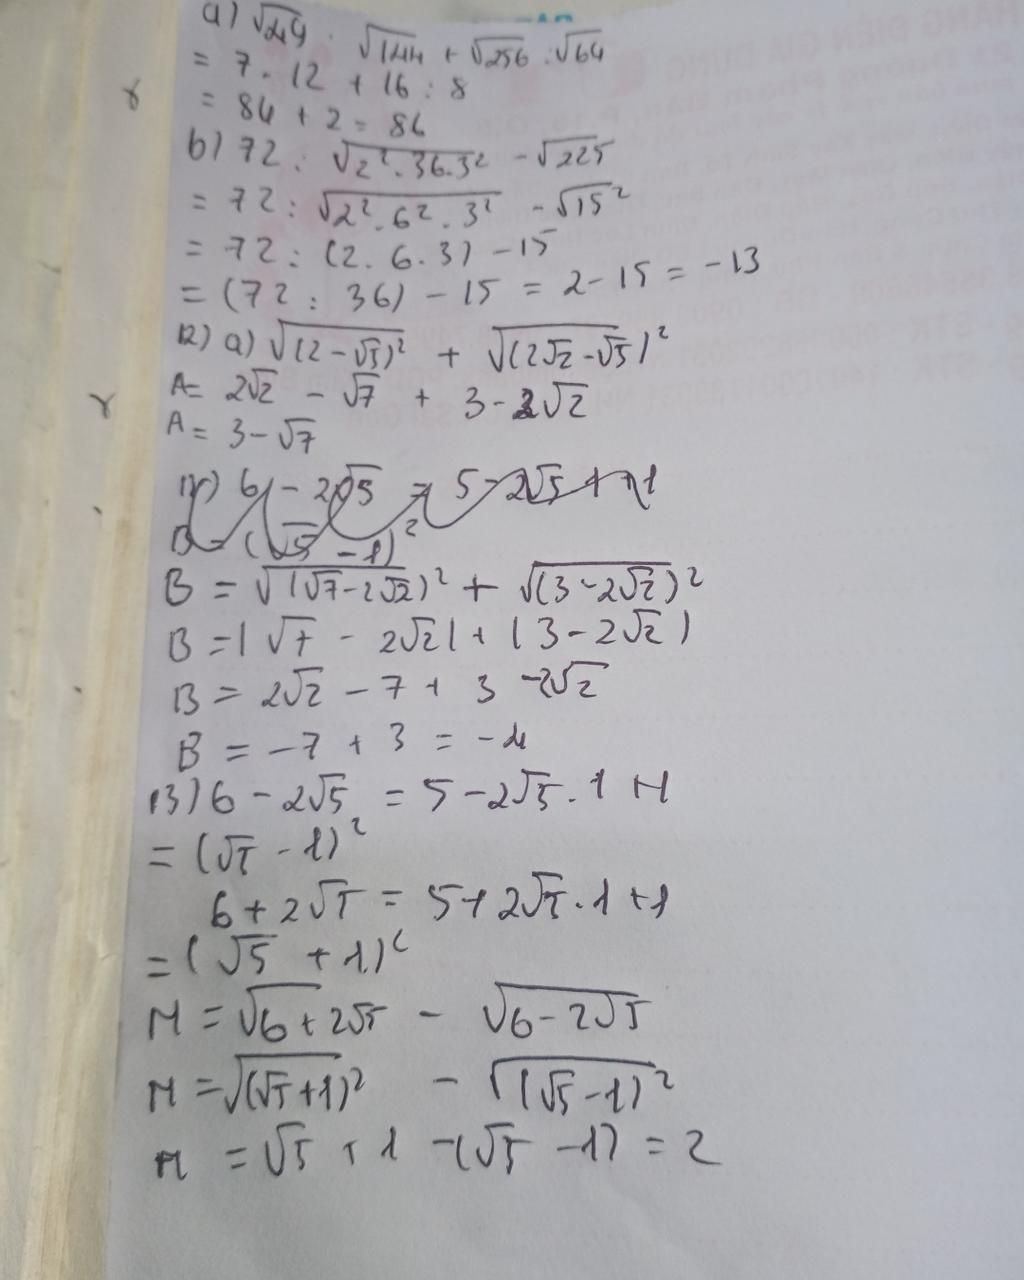 a) √49 . √144 + √256 : √64
= 7 . 12 + 16 : 8
γ = 84 + 2 = 86
b) 72 : √2² . 36 . 3² - √225
= 72 : √2² . 6² . 3² - √15²
= 72 : (2 . 6 . 3) - 15
= (72 : 36) - 15 = 2 - 15 = -13
12) a) √(2 - √5)² + √(2√2 - √5)²
γ A = 2√2 - √7 + 3 - 2√2
A = 3 - √7
6 - 2√5 = 5 - 2√5 + 1
B = (√5 - 1)²
B = √(√7 - 2√2)² + √(3 - 2√2)²
B = |√7 - 2√2| + |3 - 2√2|
B = 2√2 - 7 + 3 - 2√2
B = -7 + 3 = -4
13) 6 - 2√5 = 5 - 2√5 . 1 + 1
= (√5 - 1)²
6 + 2√5 = 5 + 2√5 . 1 + 1
= (√5 + 1)²
M = √6 + 2√5 - √6 - 2√5
M = √(√5 + 1)² - √(√5 - 1)²
M = √5 + 1 - (√5 - 1) = 2